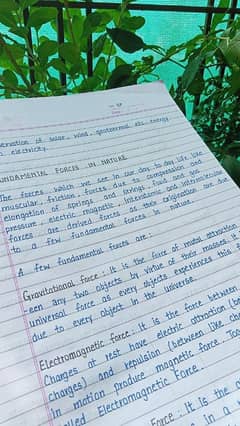 ervation of solar, wind, geothermal etc. energy
electricity.
UNDAMENTAL FORCES IN NATURE
The forces which we see in our day to day life like
muscular, friction, forces due to compression and
elongation of springs and strings, fluid and gas
pressure, electric, magnetic, interatomic and intermolecular
forces are derived forces as their originations are due
to a few fundamental forces in nature.
A few fundamental forces are :
Gravitational force : It is the force of mutual attraction
-een any two objects by virtue of their masses. It
universal force as every objects experiences this
due to every object in the universe.
Electromagnetic force : It is the force between
Charges at rest have electric attraction (be
charges) and repulsion (between like char
in motion produce magnetic force. Toge
lled Electromagnetic Force.
Force : It is the
s in a